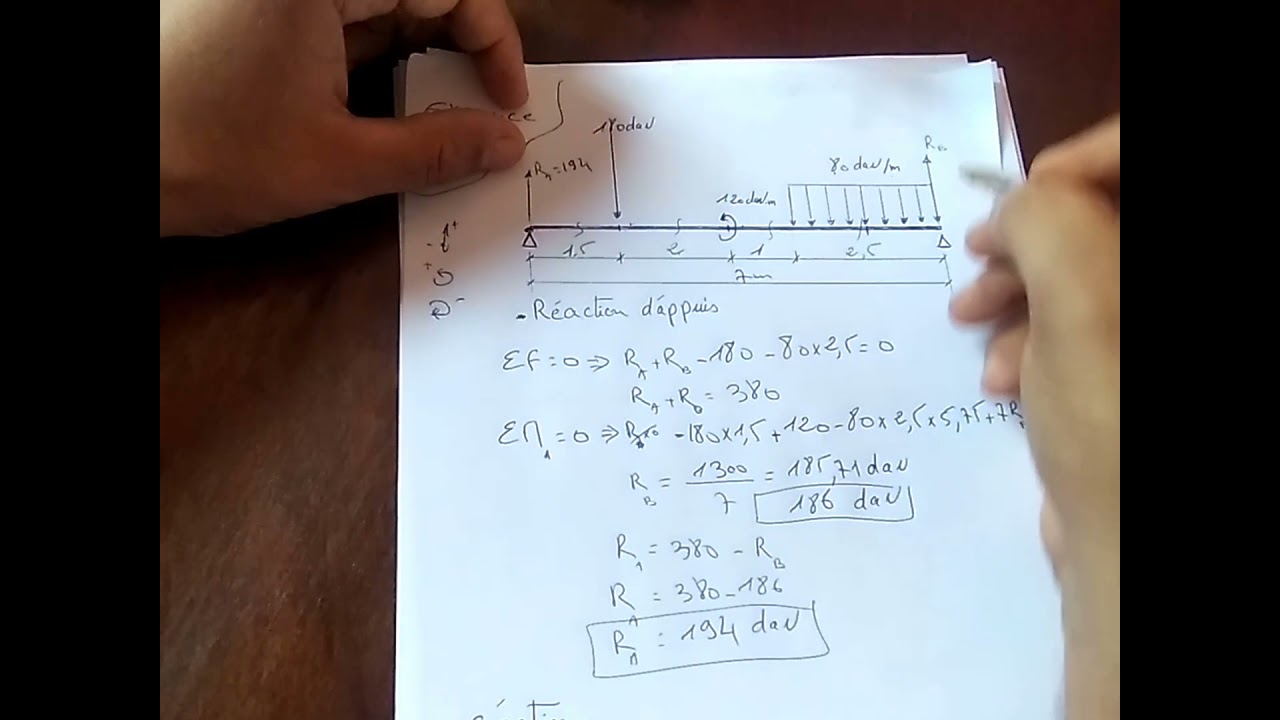 180daN
R_A=194
80daN/m
R_B
120daN/m
1,5 2 1 2,5
7m
- Réaction d'áppuis
ΣF=0 ⇒ R_A+R_B-180-80×2,5=0
R_A+R_B=380
ΣM_A=0 ⇒ -180×1,5+120-80×2,5×5,75+7R
R_B = 1300/7 = 185,71daN
186 daN
R_A = 380 - R_B
R_A = 380-186
R_A = 194 daN